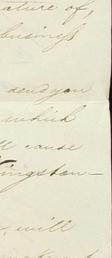 ature of,
business
send you
which
cause
Kingston—
will